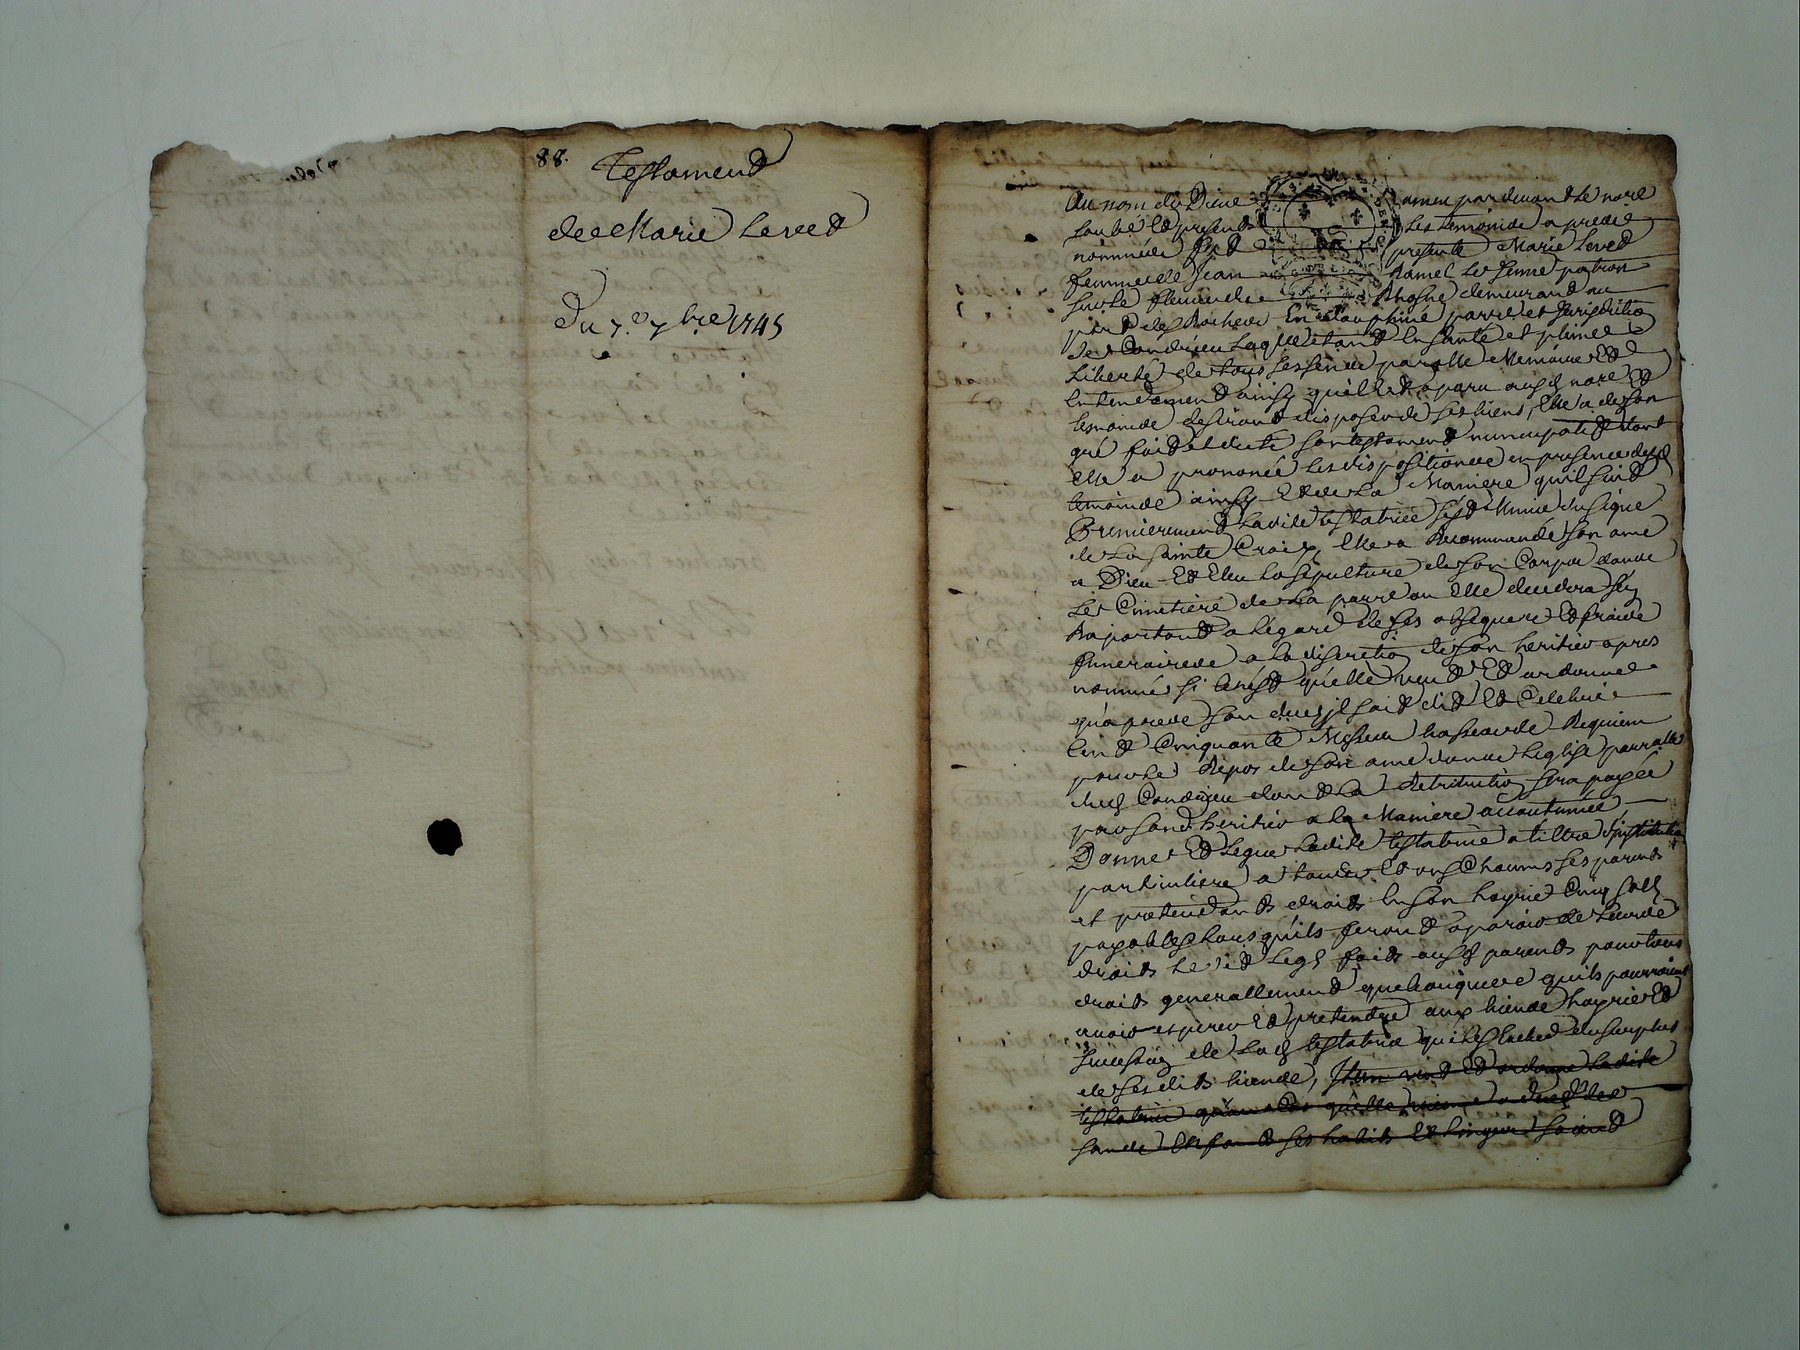 88.
Testament
de Marie Levet
Du 7e 7bre 1745
Au nom de Dieu amen pardevant le nore
soubsé et presents les temoins apres
nommés fut presente Marie Levet
femme de Jean Ramel le jeune patron
sur le fleuve de Rhosne demeurant au
port des Roches en dauphiné parre et jurisdiction
de Condrieu laquelle etant en santé et pleine
liberté de tous ses sens parolle memoire et
entendement ainsy quil est aparu audt nore et
temoins desirant disposer de ses biens, Elle a de son
gré fait et dicté son testament nuncupatif dont
elle a prononcé les dispositions en presence desdt
temoins ainsy et de la maniere quil suit
Premierement ladite testatrice s'est munie du signe
de la sainte Croix, elle a recommandé son ame
a Dieu et elu la sepulture de son corps dans
le Cimetiere de la parre ou elle decedera se
raportant a l'egard de ses obseques et frais
funeraires a la discretion de son heritier apres
nommé si c'est qu'elle veut et ordonne
qu'apres son deces jl soit dit et celebré
cent cinquante Messes basses de Requiem
pour le repos de son ame dans l'eglise parralle
dudt Condrieu dont la retribution sera payée
par sondt heritier a la maniere accoutumée
Donne et legue ladite testatrice a tiltre d'institution
particuliere a toutes et uns chacuns ses parents
et pretendants droits en son hoyrie cinq sols
payables lors qu'ils feront aparoir de leurs
droits le dit legs fait auxdt parents pour tous
droits generallement quelconques quils pourroient
avoir esperer et pretendre aux biens hoyrie et
succession de ladt testatrice qui les exclud du surplus
de ses dits biens, Item veut et ordonne ladite
testatrice qu'au cas qu'elle vienne a deceder
sans enfants ses habits et linges soient